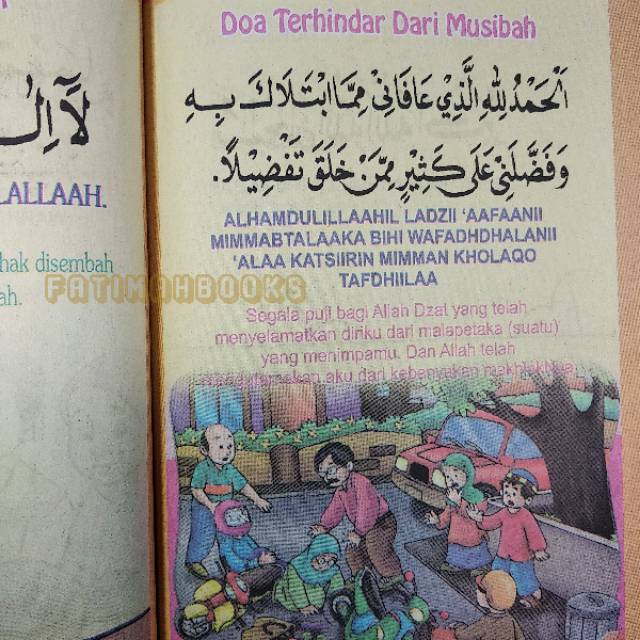 لَآ اِلٰ
LALLAAH.
hak disembah
ah.
Doa Terhindar Dari Musibah
اَلْحَمْدُ لِلّٰهِ الَّذِيْ عَافَانِيْ مِمَّا ابْتَلَاكَ بِهِ
وَفَضَّلَنِيْ عَلَى كَثِيْرٍ مِمَّنْ خَلَقَ تَفْضِيْلًا.
ALHAMDULILLAAHIL LADZII ‘AAFAANII
MIMMABTALAAKA BIHI WAFADHDHALANII
‘ALAA KATSIIRIN MIMMAN KHOLAQO
TAFDHIILAA
Segala puji bagi Allah Dzat yang telah
menyelamatkan diriku dari malapetaka (suatu)
yang menimpamu. Dan Allah telah
aku dari kebanyakan
FATIMAHBOOKS